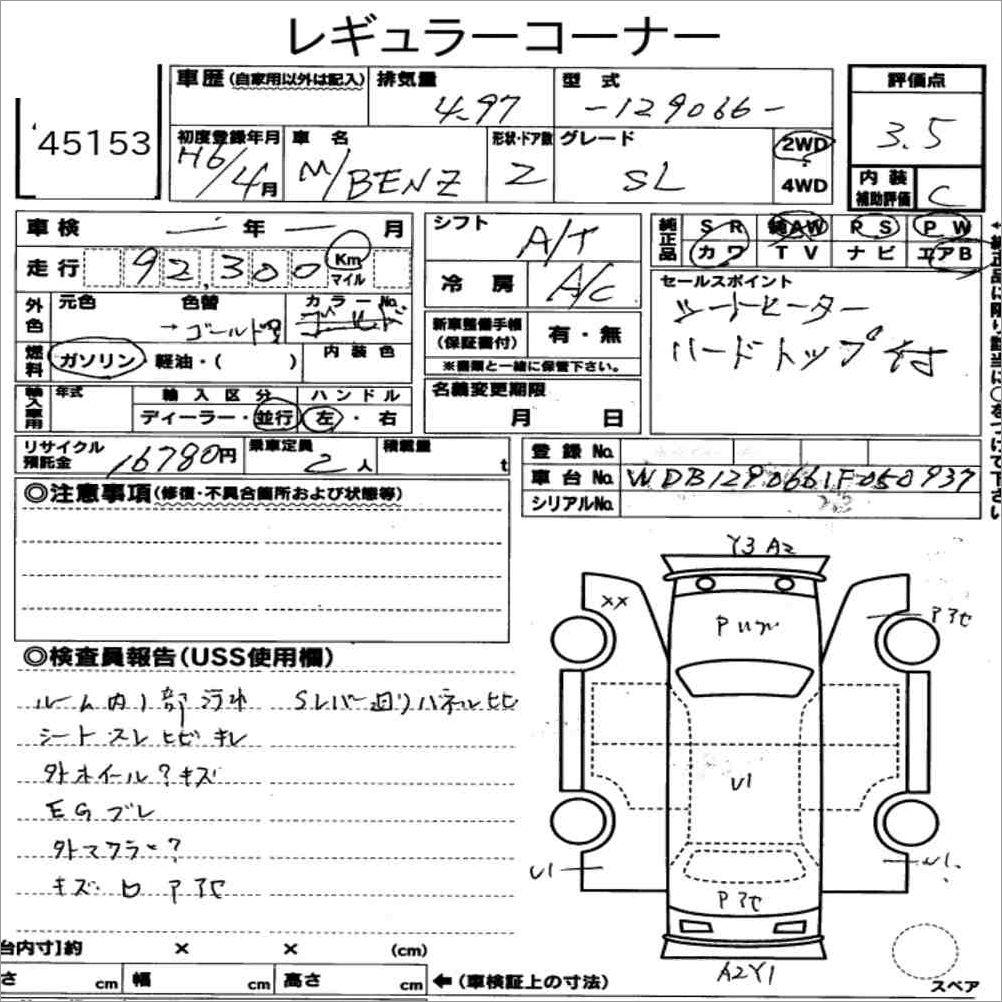 レギュラーコーナー
45153
車歴(自家用以外は記入) 排気量 型式 評価点
4.97 -129066- 3.5
初度登録年月 車名 形状・ドア数 グレード 2WD
H6/4月 M/BENZ 2 SL 4WD
内装補助評価 C
車検 年 月
シフト A/T
純正品 SR 純AW RS PW
カワ TV ナビ エアB
走行 92,300 Km マイル
冷房 A/C
セールスポイント
シートヒーター
ハードトップ付
外色 元色 色替 カラーNo.
→ゴールド
燃料 ガソリン・軽油・( ) 内装色
新車整備手帳(保証書付) 有・無
※書類と一緒に保管下さい。
輸入車用 年式 輸入区分 ハンドル
ディーラー・並行 左・右
名義変更期限
月 日
リサイクル預託金 16780円 乗車定員 2人 積載量 t
登録No.
車台No. WDB1290661F050937
シリアルNo.
◎注意事項(修復・不具合箇所および状態等)
◎検査員報告(USS使用欄)
ルーム内1部汚れ Sレバー廻りパネルヒビ
シートスレヒビキレ
外ホイール?キズ
EGブレ
外マフラー?
キズ・凹 アセ
Y3 A2
XX
アセ
U1
U1
アセ
A2Y1
スペア
台内寸]約 × × (cm)
さ cm 幅 cm 高さ cm ←(車検証上の寸法)